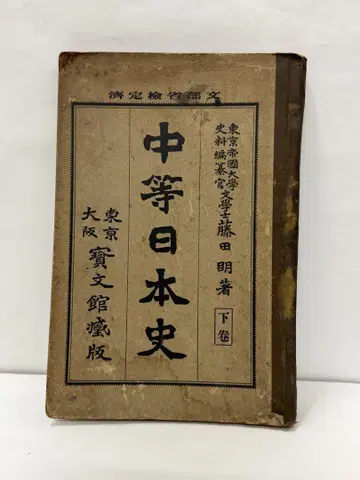 濟定檢省部文
東京帝國大學
史料編纂官
文學士
藤田明著
下卷
中等日本史
東京
大阪
寶文館藏版